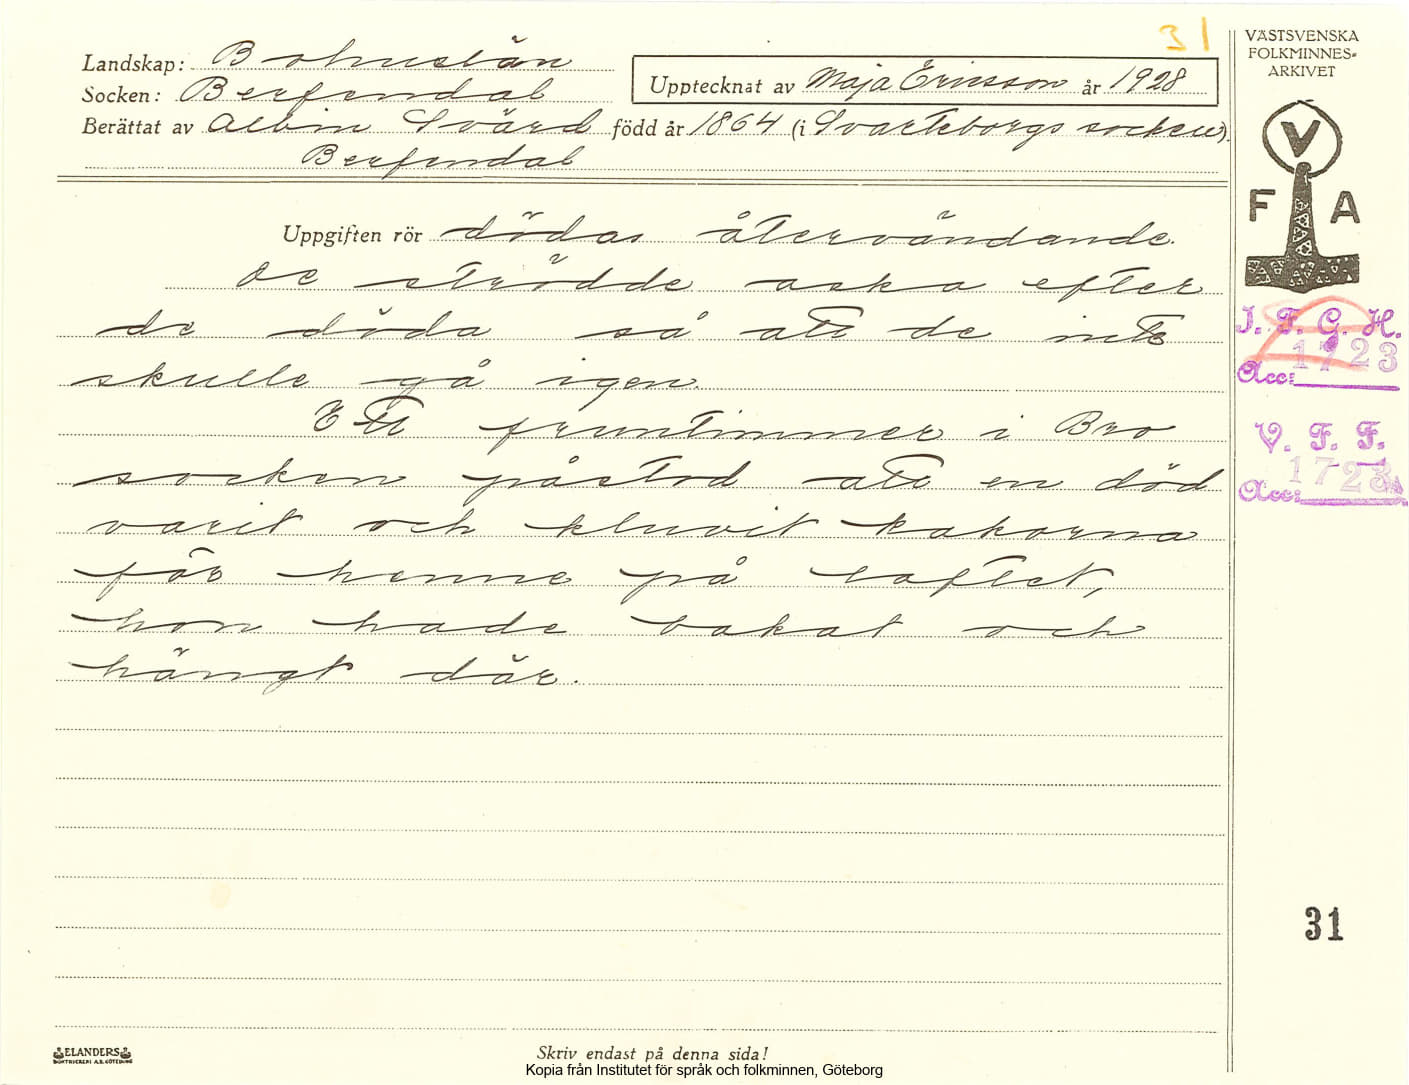 31
VÄSTSVENSKA
FOLKMINNES-
ARKIVET
Landskap: Bohuslän
Socken: Berfendal
Upptecknat av Maja Ericsson år 1928
Berättat av Albin Svärd född år 1864 (i Svarteborgs socken).
Berfendal
V
F A
Uppgiften rör dödas återvändande.
De strödde aska efter
de döda så att de inte
skulle gå igen.
Ett fruntimmer i Bro
socken påstod att en död
varit och kluvit kakorna
för henne på loftet,
hon hade bakat och
hängt där.
I. F. G. H.
1723
Acc:
V. F. F.
1723
Acc:
31
ELANDERS
BOKTRYCKERI A.B. GÖTEBORG
Skriv endast på denna sida!
Kopia från Institutet för språk och folkminnen, Göteborg